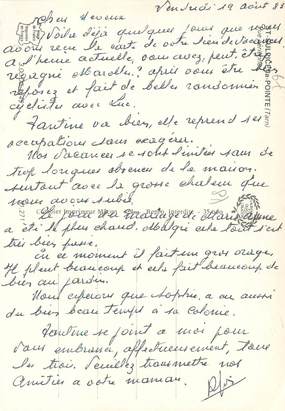 Vendredi 19 août 83
Chers neveux
Voilà déjà quelques jours que nous
avons reçu la carte de votre lieu de vacances
a l'heure actuelle, vous avez, peut, être
regagné après vous être
reposés et fait de belles randonnées
cyclistes avec Luc.
Fantine va bien, elle reprend ses
occupations sans exagérer.
Nos vacances se sont limités sans de
trop longues absences de la maison,
surtout avec la grosse chaleur que
nous avons subie.
a été le plus chaud. Malgré cela tout s'est
très bien passé.
En ce moment il fait un gros orage,
Il pleut beaucoup et cela fait beaucoup de
bien au jardin.
Nous espérons que Sophie, a eu aussi
du bien beau temps à sa colonie.
Fantine se joint a moi pour
vous embrasser, affectueusement, tous
les trois. Veuillez transmettre nos
Amitiés a votre maman.
POINTE (Tarn)